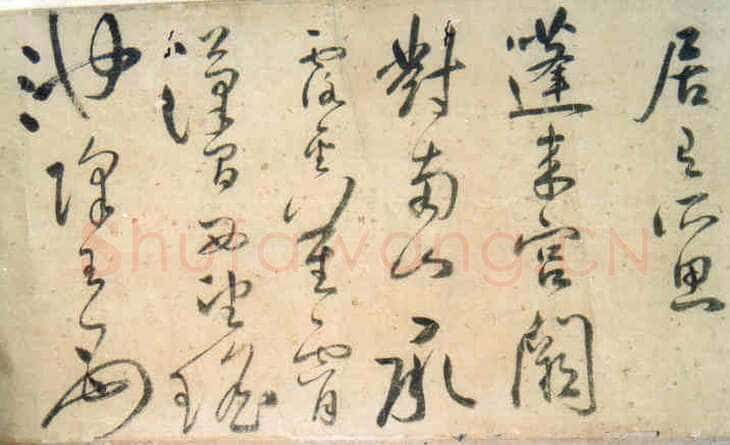 居有所思
蓬来宮闕
對南山承
露金莖霄
漢間西望瑤
池降王母
Shufawang.CN